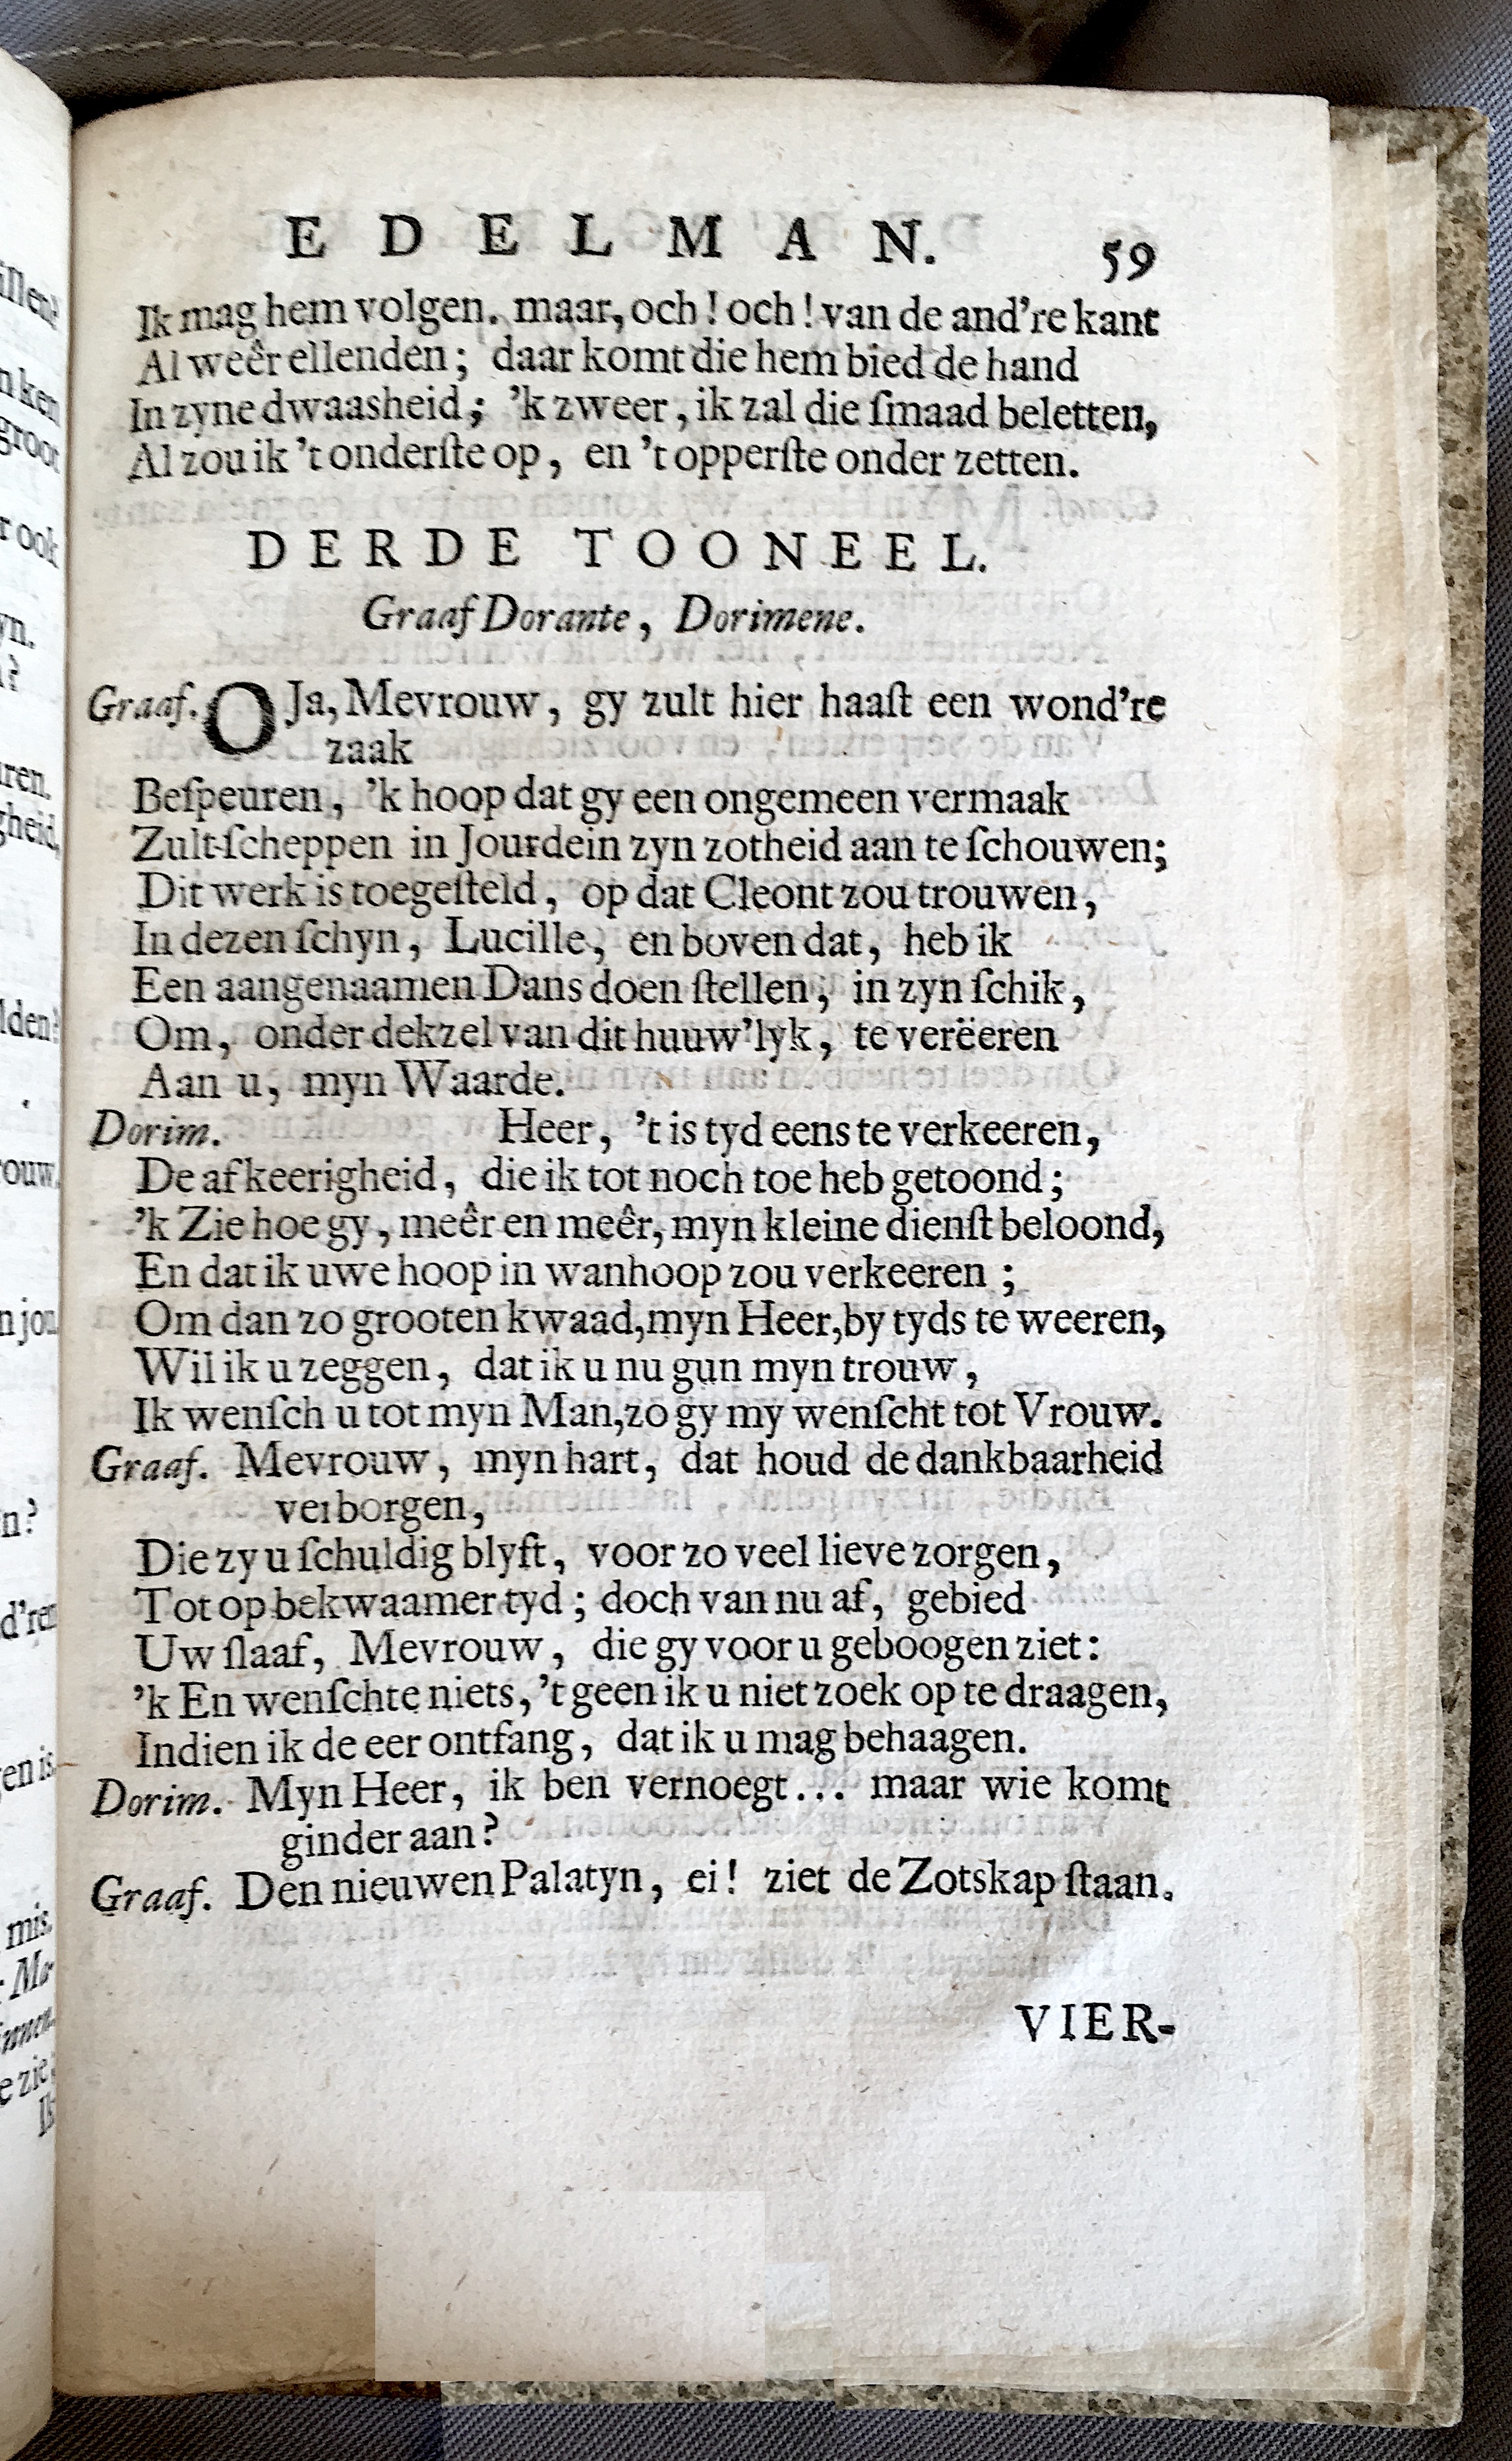 E D E L M A N. 59
Ik mag hem volgen. maar, och! och! van de and're kant
Al weêr ellenden; daar komt die hem bied de hand
In zyne dwaasheid; 'k zweer, ik zal die ſmaad beletten,
Al zou ik 't onderſte op, en 't opperſte onder zetten.
DERDE TOONEEL.
Graaf Dorante, Dorimene.
Graaf. O Ja, Mevrouw, gy zult hier haaſt een wond're
zaak
Beſpeuren, 'k hoop dat gy een ongemeen vermaak
Zult ſcheppen in Jourdein zyn zotheid aan te ſchouwen;
Dit werk is toegeſteld, op dat Cleont zou trouwen,
In dezen ſchyn, Lucille, en boven dat, heb ik
Een aangenaamen Dans doen ſtellen, in zyn ſchik,
Om, onder dekzel van dit huuw'lyk, te verëeren
Aan u, myn Waarde.
Dorim. Heer, 't is tyd eens te verkeeren,
De afkeerigheid, die ik tot noch toe heb getoond;
'k Zie hoe gy, meêr en meêr, myn kleine dienſt beloond,
En dat ik uwe hoop in wanhoop zou verkeeren;
Om dan zo grooten kwaad, myn Heer, by tyds te weeren,
Wil ik u zeggen, dat ik u nu gun myn trouw,
Ik wenſch u tot myn Man, zo gy my wenſcht tot Vrouw.
Graaf. Mevrouw, myn hart, dat houd de dankbaarheid
verborgen,
Die zy u ſchuldig blyft, voor zo veel lieve zorgen,
Tot op bekwaamer tyd; doch van nu af, gebied
Uw ſlaaf, Mevrouw, die gy voor u geboogen ziet:
'k En wenſchte niets, 't geen ik u niet zoek op te draagen,
Indien ik de eer ontfang, dat ik u mag behaagen.
Dorim. Myn Heer, ik ben vernoegt... maar wie komt
ginder aan?
Graaf. Den nieuwen Palatyn, ei! ziet de Zotskap ſtaan.
VIER-